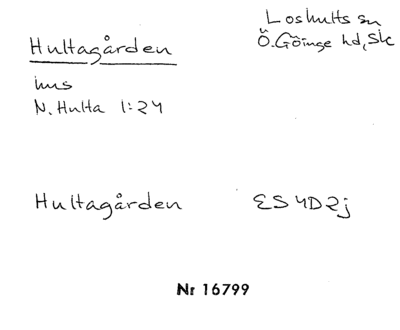 Hultagården
Loshults sn
Ö. Göinge hd, Sk
hus
N. Hulta 1:24
Hultagården ES4D2j
Nr 16799